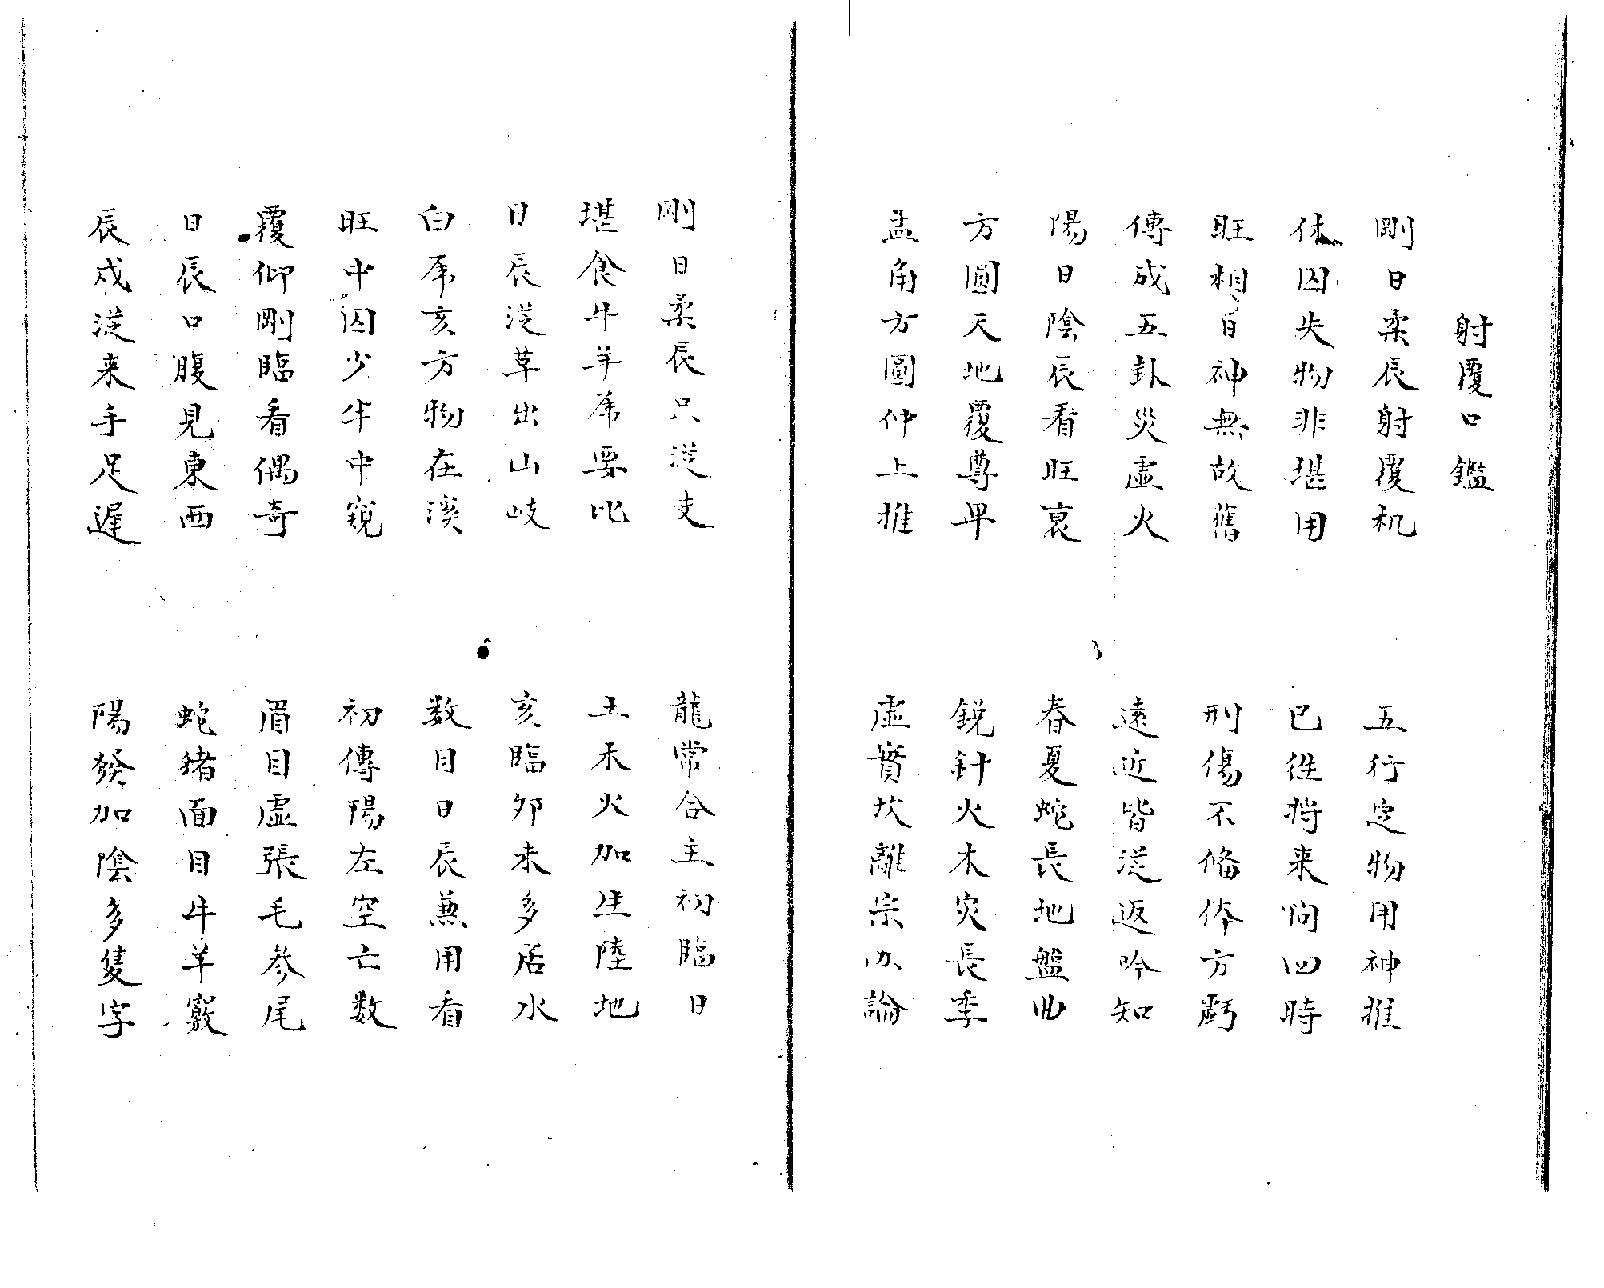 射覆口鑑
剛日柔辰射覆机 五行定物用神推
休囚失物非堪用 已徃將来問四時
旺相日神無故舊 刑傷不偹体方虧
傳成五卦災虚火 遠近皆從返吟知
陽日陰辰看旺衰 春夏蛇長地盤曲
方圓天地覆尊卑 鋭針火木災長季
孟角方圓仲上推 虚實坎離宗以論
剛日柔辰只從支 龍常合主初臨日
堪食牛羊虎要比 土未火加生陸地
日辰從草出山岐 亥臨卯未多居水
白虎亥方物在溪 数目日辰兼用看
旺中囚少半中窺 初傳陽左空亡數
覆仰剛臨看偶奇 眉目虚張毛參尾
日辰口腹見東西 蛇猪面目牛羊竅
辰戍從来手足遲 陽發加陰多隻字